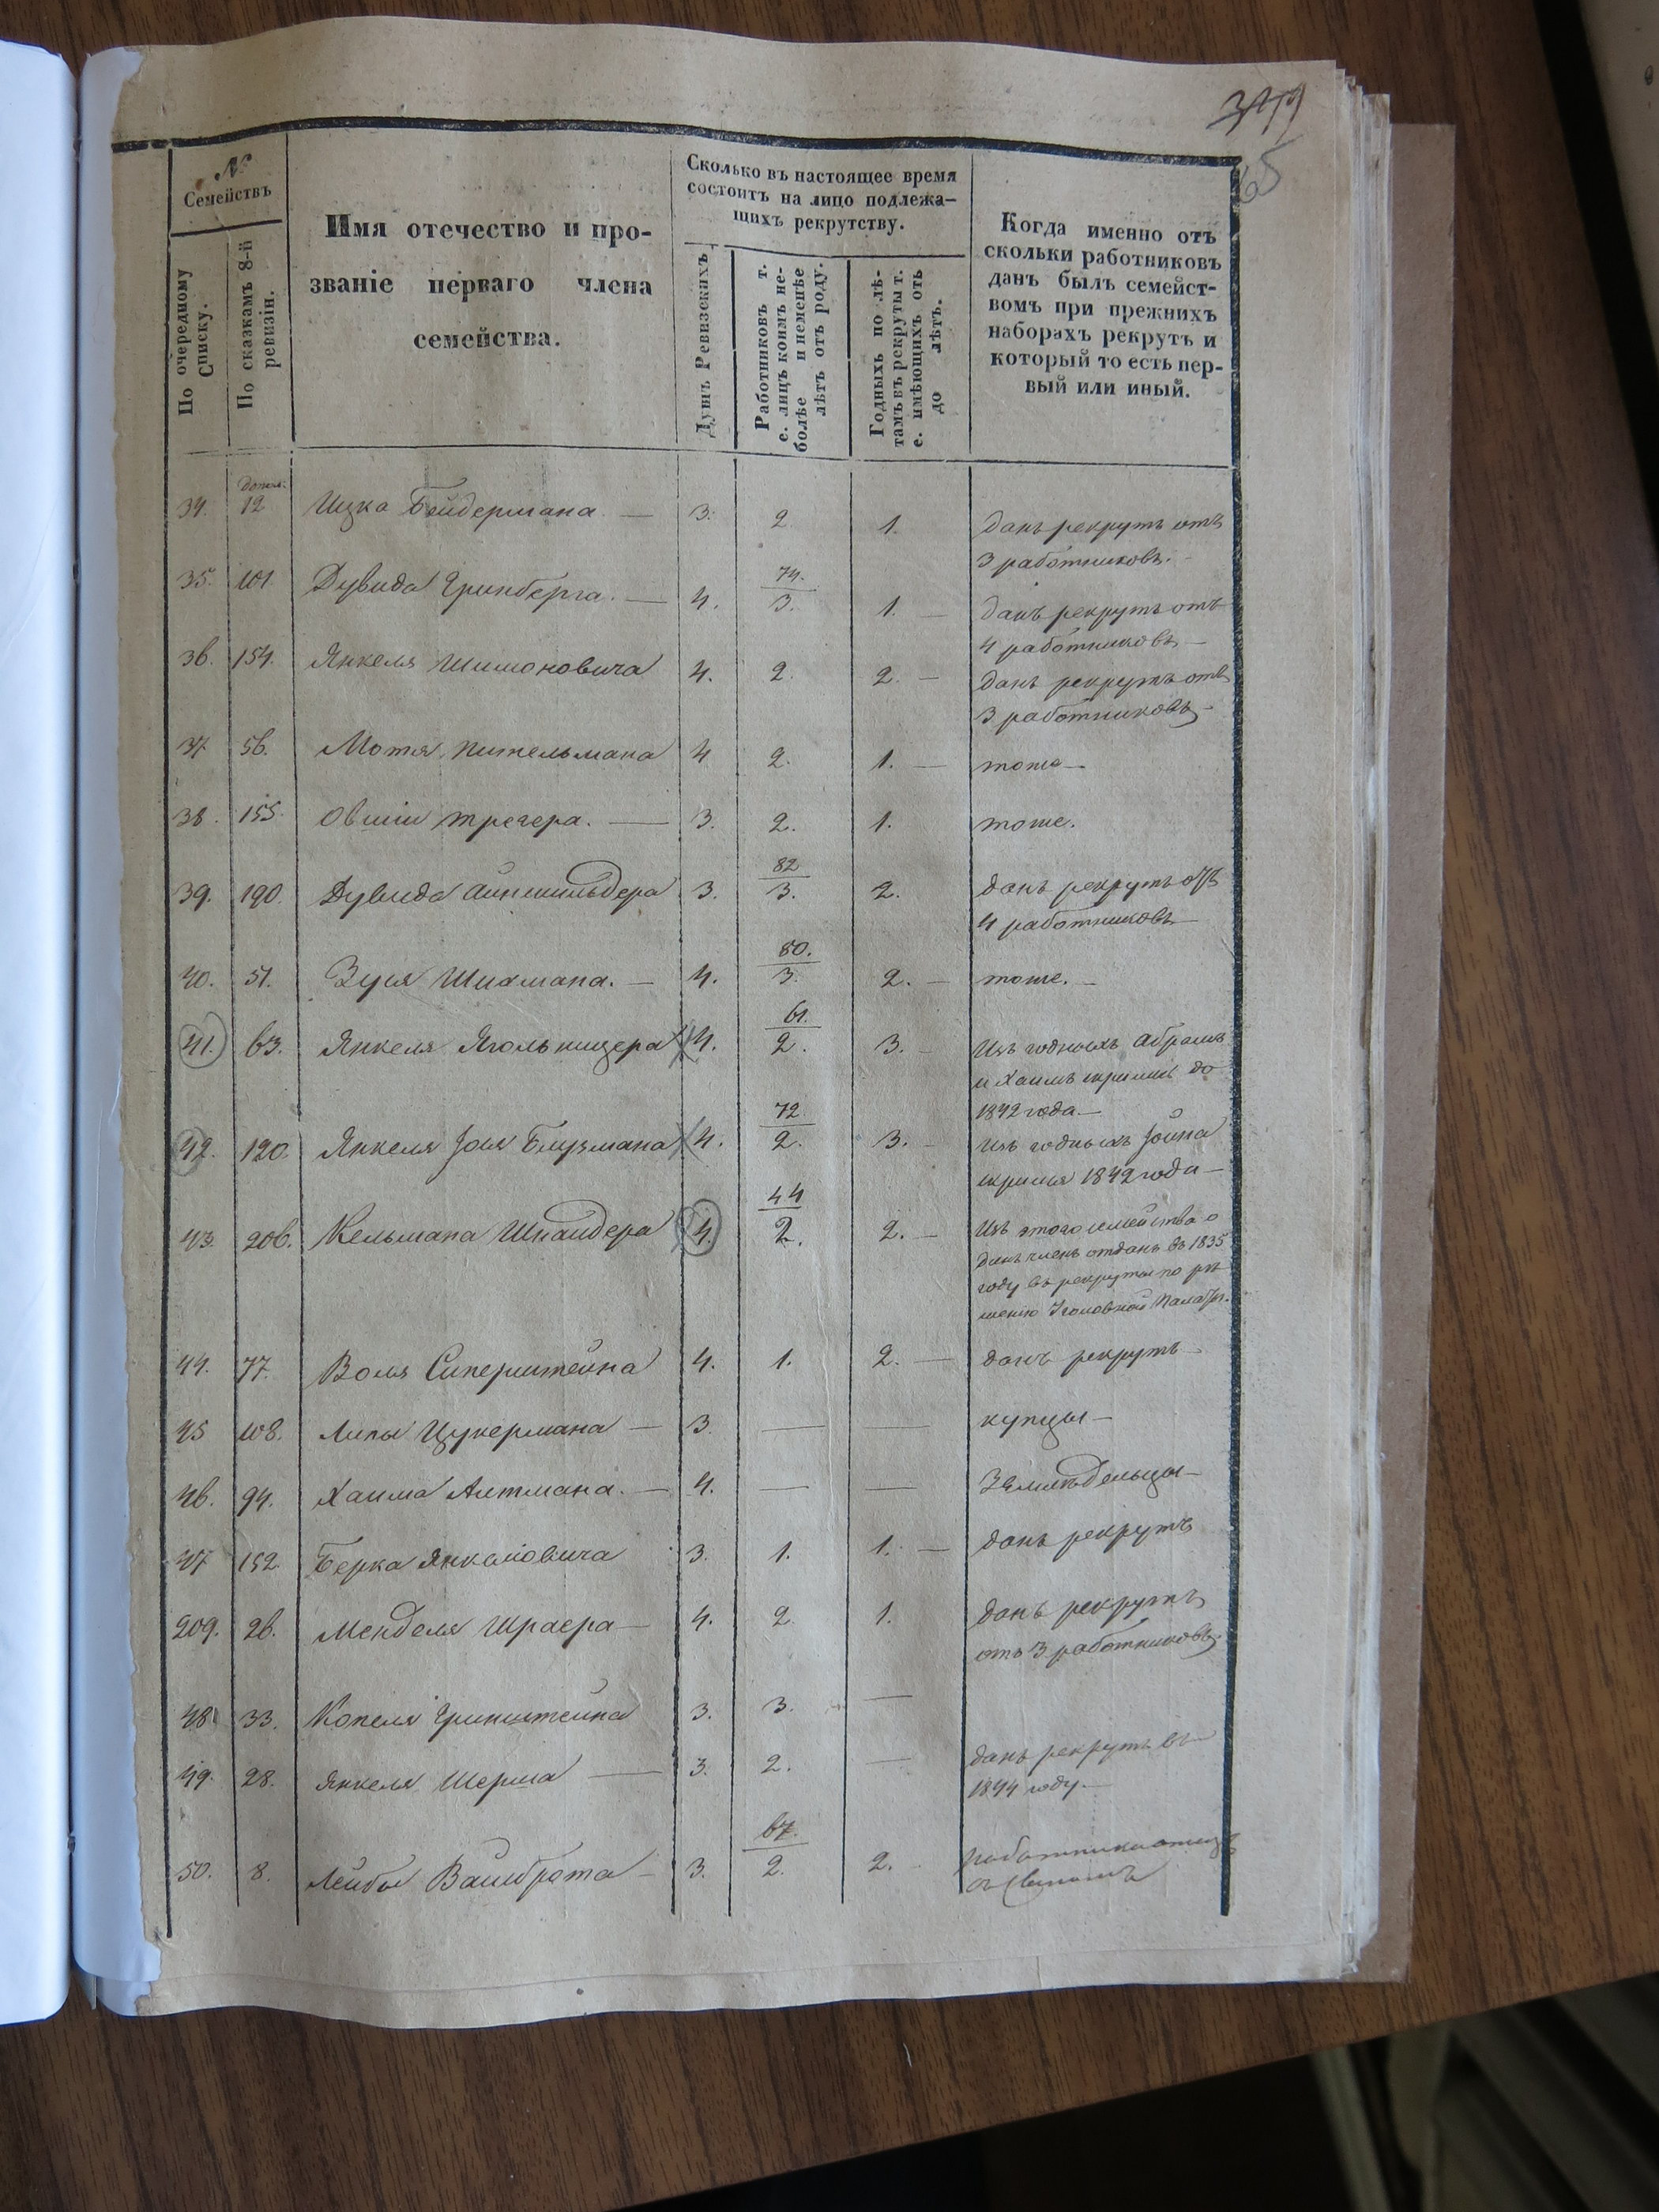 65
№
Семействъ
По очередному Списку.
По сказкамъ 8-й ревизіи.
Имя отечество и про-
званіе перваго члена
семейства.
Сколько въ настоящее время
состоитъ на лицо подлежа-
щихъ рекрутству.
Душъ Ревизскихъ
Работниковъ т.
е. лицъ коимъ не-
болѣе и неменѣе
лѣтъ отъ роду.
Годныхъ по лѣ-
тамъ въ рекруты т.
е. имѣющихъ отъ
до лѣтъ.
Когда именно отъ
сколки работниковъ
данъ былъ семейст-
вомъ при прежнихъ
наборахъ рекрутъ и
который то есть пер-
вый или иный.
34. Допол. 12 Ицка Бейдермана — 3. 2 1. данъ рекрутъ отъ
3 работниковъ. -
35. 101 Дувида Гринберга. — 4. 74. 3. 1. — данъ рекрутъ отъ
4 работниковъ —
36. 154. Янкеля Шимоновича 4. 2. 2. — данъ рекрутъ отъ
3 работниковъ -
37 56. Мотя Пительмана 4 2. 1. — тоже —
38. 155. Овшии Трегера. — 3. 2. 1. тоже.
39. 190. Дувида 3. 82 3. 2. данъ рекрутъ отъ
4 работниковъ —
40. 51. Зуся Шихмана. — 4. 80. 3. 2. — тоже. -
41. 63. Янкеля 4. 61. 2. 3. - Изъ годныхъ Абрамъ
и Хаимъ до
1842 года. —
42. 120. Янкеля Блузмана 4. 72 2. 3. - Изъ годныхъ
1842 года —
43. 206. Кельмана Шнайдера 4. 44 2. 2. — Изъ этого семейства о
динъ членъ отданъ въ 1835
году въ рекруты по рѣ
шенію Уголовной Палаты.
44. 77. Воля Сиперштейна 4. 1. 2. — данъ рекрутъ -
45 108. Липы Цукермана — 3. — — купцы —
46. 94. Хаима Алтмана. — 4. — — Земледельцы —
47 152. Берка Янкеловича 3. 1. 1. — данъ рекрутъ
209. 26. Менделя Шраера — 4. 2. 1. данъ рекрутъ
отъ 3 работниковъ.
48 33. Копеля Гринштейна 3. 3. —
49. 28. Янкеля Шерма — 3. 2. — данъ рекрутъ въ
1844 году. —
50. 8. Лейбы Вайнброта — 3. 67. 2. 2. работники отецъ
съ сыномъ